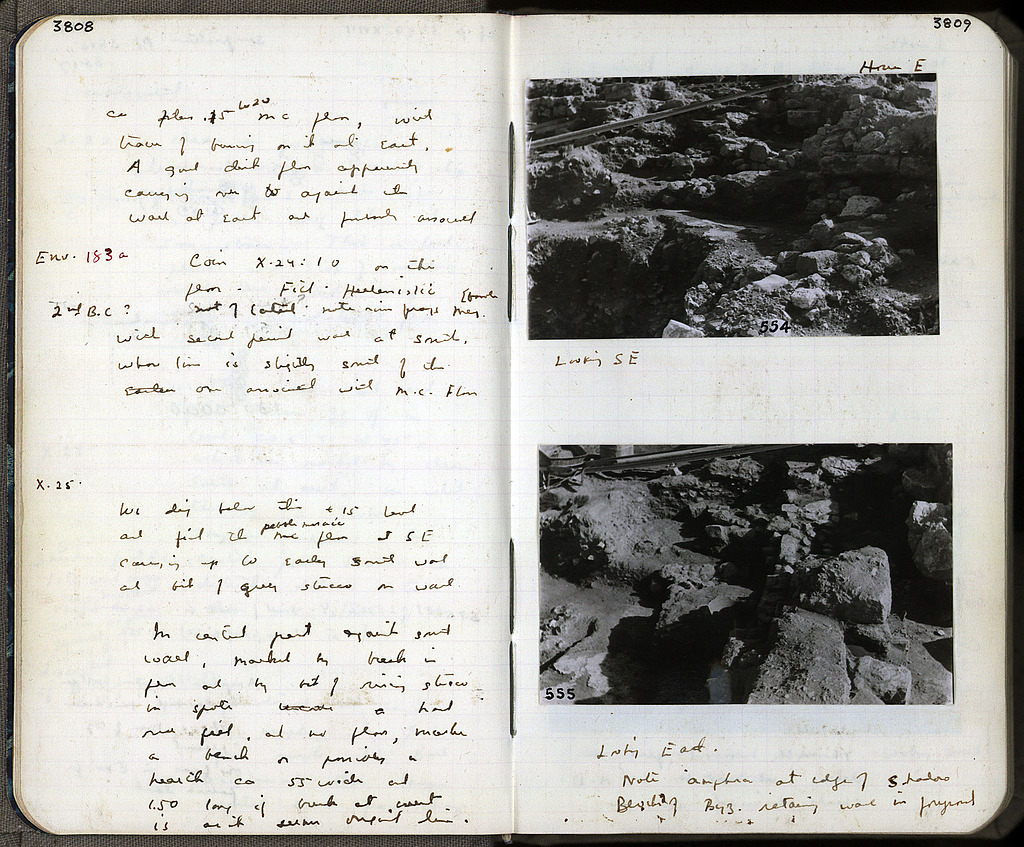 3808
ca plus .15 to 20 mc floor, with
trace of burning on it at East.
A good dirt floor apparently
carrying over to against the
wall at East and probably associated
Env. 183a Coin X.24:10 on this
floor. Fill. Hellenistic
2nd B.C? not 7 note rim frags Meg. Bowls
with second period wall at south,
whose line is slightly south of the
earlier one associated with m.c. Floor
X.25.
We dig below this + 15 level
and find the pebble mosaic floor at SE
carrying up to early south wall
and bit of grey stucco on wall
In central part against south
wall, marked by break in
floor and by bit of rising stucco
in spots a hard
fill, and no floor, maybe
a bench or possibly a
hearth ca 55 wide and
1.50 long if break at west
is as it seems original line.
3809
House E
554
Looking SE
555
Looking East.
Note amphora at edge of shadow
of Byz. retaining wall in foreground